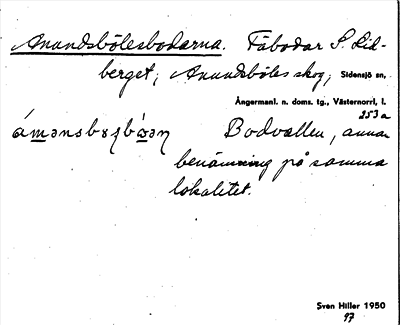 Anundsbölesbodarna. Fäbodar S. Lid-
berget; Anundsböles skog; Sidensjö sn,
Ångermanl. n. doms. tg., Västernorrl, l.
253a
Bodvallen, annan
benämning på samma
lokalitet.
Sven Hiller 1950
97